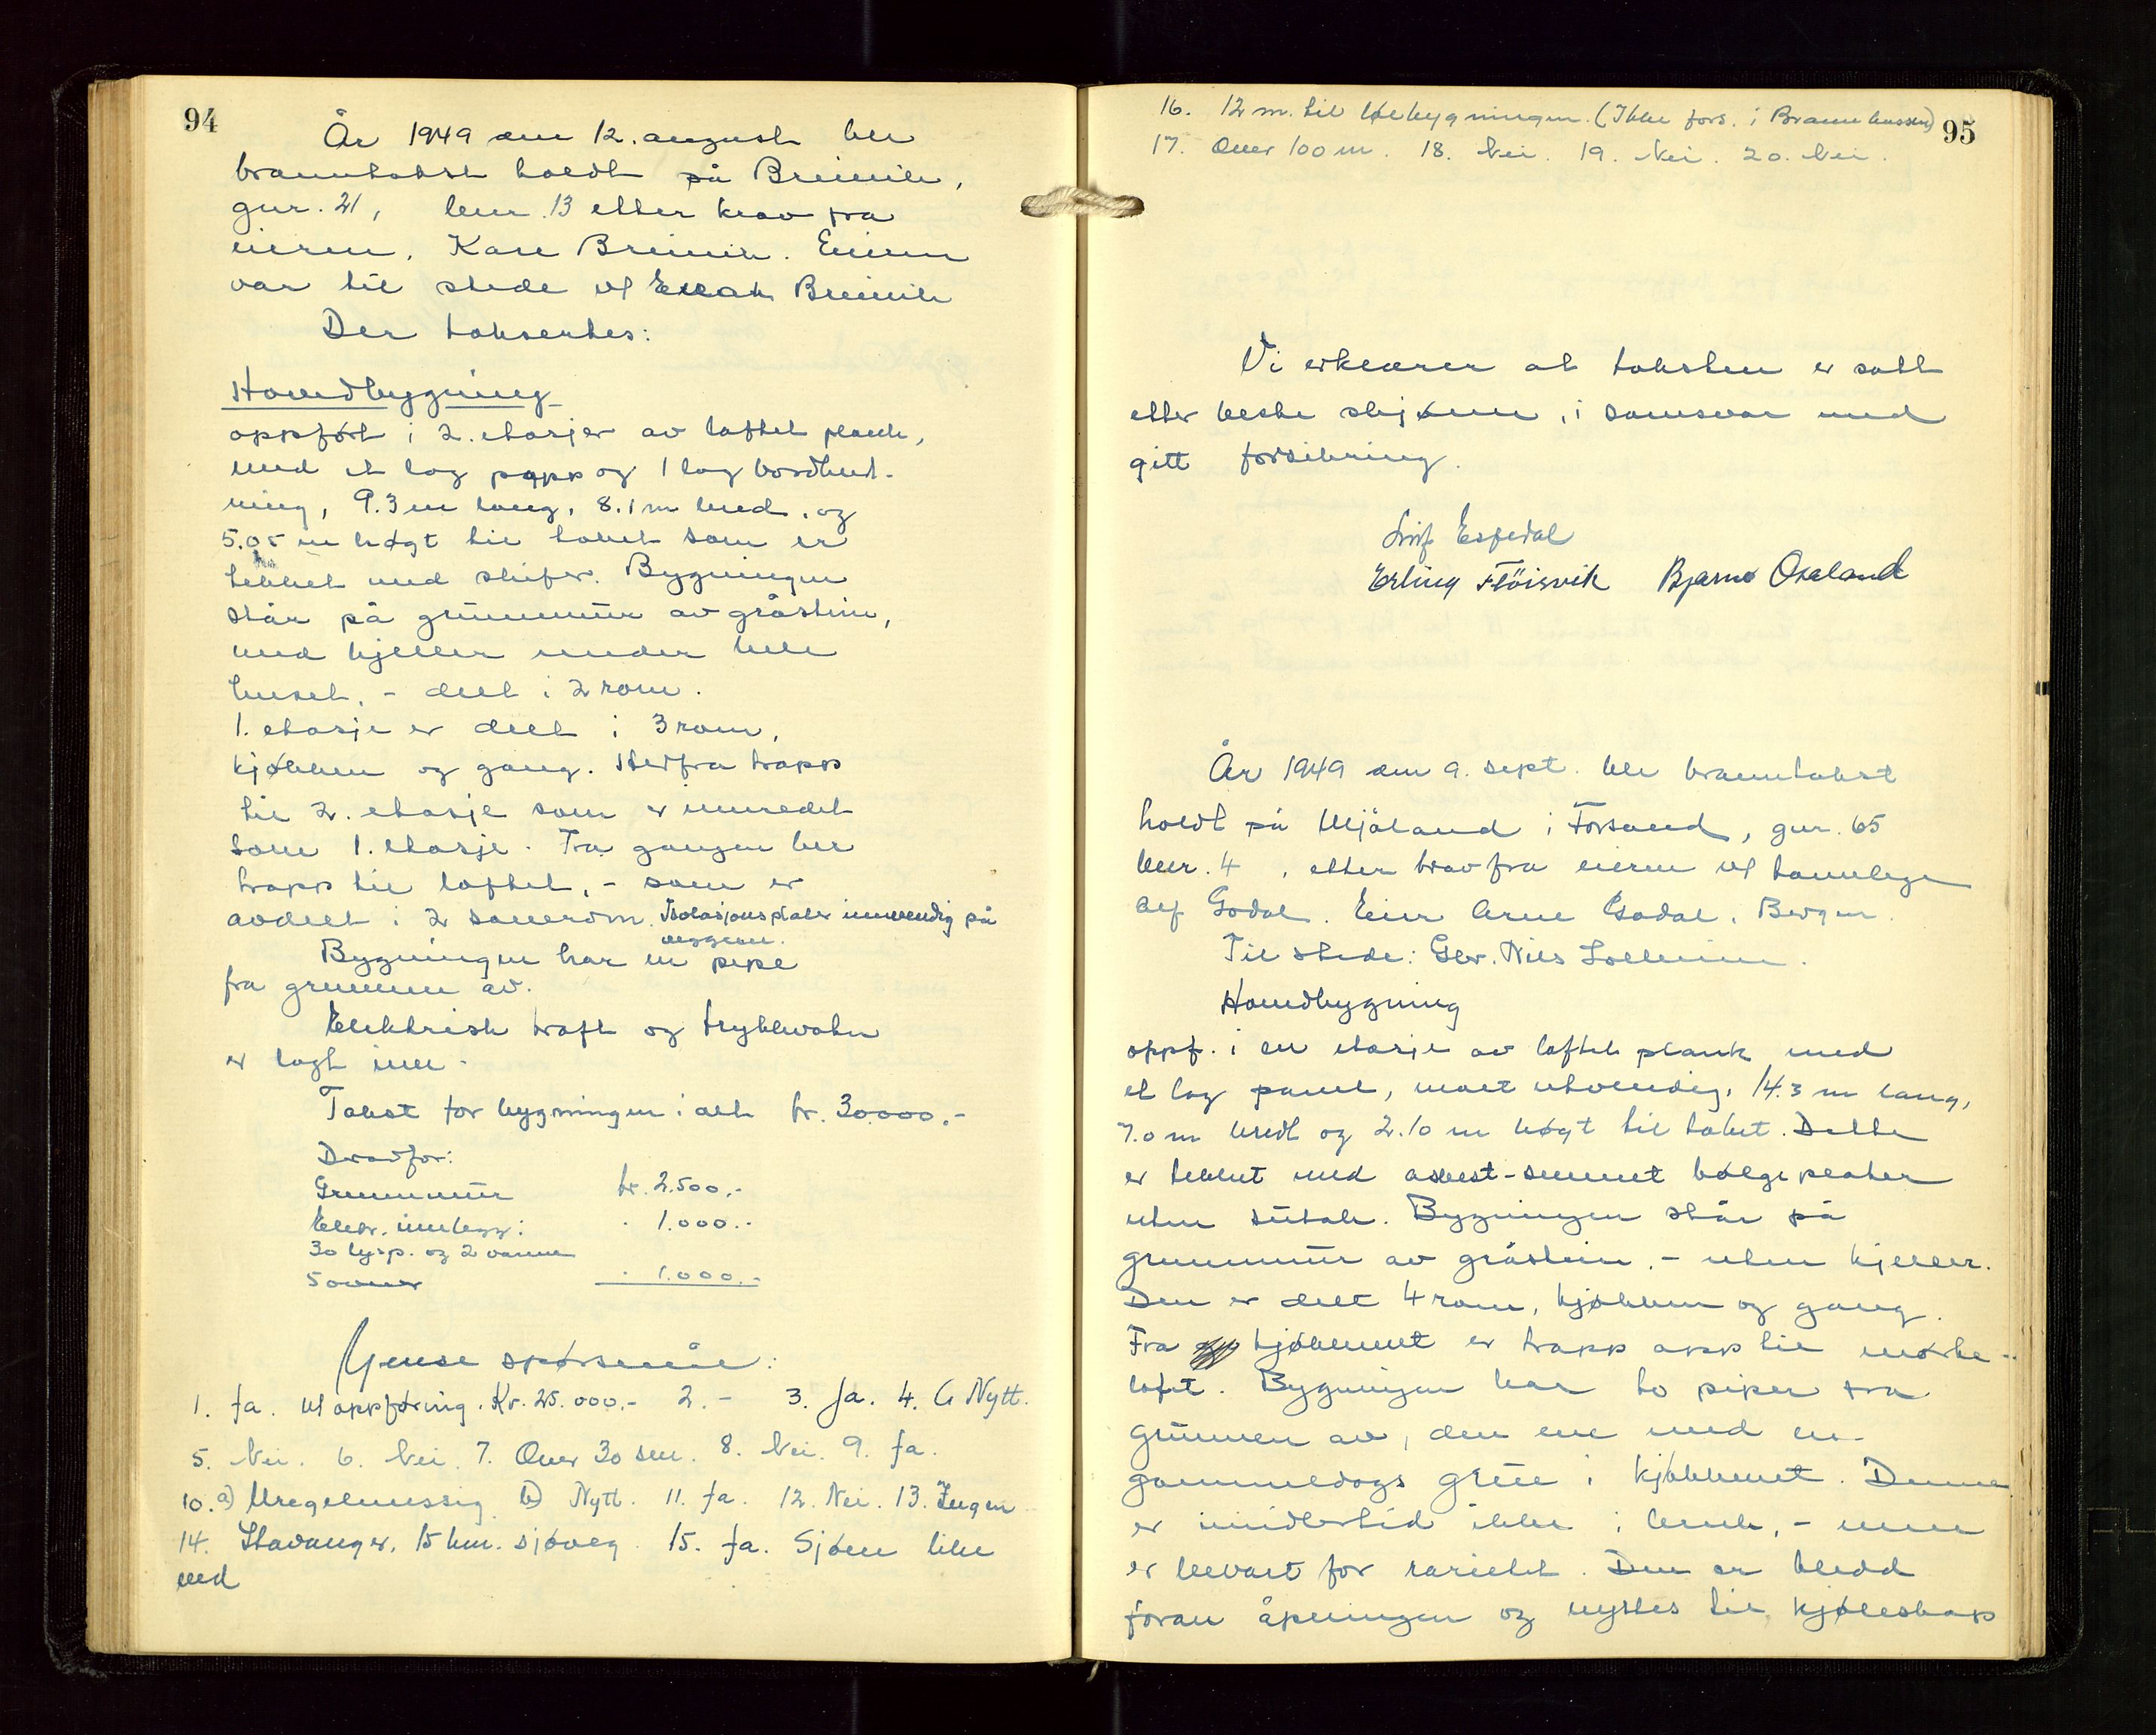 94
År 1949 den 12. august ble
branntakst holdt på Breivik,
gnr. 21, bnr. 13 etter krav fra
eieren, Kåre Breivik. Eieren
var til stede v/ Breivik
Der taksertes:
Hovedbygning
oppført i 2. etasjer av laftet plank,
med et lag papp og 1 lag bordkled-
ning, 9.3 m lang, 8.1 m bred, og
5.05 m høgt til taket som er
tekket med skifer. Bygningen
står på grunnmur av gråstein,
med kjeller under hele
huset, - delt i 2 rom.
1. etasje er delt i 3 rom,
kjøkken og gang. Herfra trapp
til 2. etasje som er innredet
som 1. etasje. Fra gangen her
trapp til loftet, - som er
avdelt i 2 soverom. Isolasjonsplater innvendig på
veggene.
Bygningen har en pipe
fra grunnen av.
Elektrisk kraft og trykkvatn
er lagt inn.
Takst for bygningen i alt kr. 30.000.-
Deravfor:
Grunnmur kr. 2.500.-
Elektr. innlegg: " 1.000.-
30 lysp. og 2 varme
5 ovner " 1.000.-
Ymse spørsmål:
1. Ja. v/ oppføring. Kr. 25.000.- 2. - 3. Ja. 4. Nytt.
5. Nei. 6. Nei. 7. Over 30 sm. 8. Nei. 9. Ja.
10. a) Uregelmessig b) Nytt. 11. Ja. 12. Nei. 13. Ingen
14. Stavanger, 15 km. sjøveg. 15. Ja. Sjøen like
ved
95
16. 12 m. til løebygningen. (Ikke fors. i Brannkassen)
17. Over 100 m. 18. Nei. 19. Nei. 20. Nei.
Vi erklærer at taksten er satt
etter beste skjønn, i samsvar med
gitt forsikring.
Leif Espedal
Erling Fløisvik Bjarne Oxaland
År 1949 den 9. sept. ble branntakst
holdt på Mjåland i Forsand, gnr. 65
bnr. 4, etter krav fra eieren v/ tannlege
Alf Godal. Eier Arne Godal, Bergen.
Til stede: Gbr. Nils
Hovedbygning
oppf. i en etasje av laftet plank med
et lag panel, malt utvendig, 14.3 m lang,
7.0 m bredt og 2.10 m høgt til taket. Dette
er tekket med asbest-sement bølgeplater
uten sutak. Bygningen står på
grunnmur av gråstein, - uten kjeller.
Den er delt 4 rom, kjøkken og gang.
Fra kjøkkenet er trapp opp til mørke-
loft. Bygningen har to piper fra
grunnen av, den ene med en
gammeldags grue i kjøkkenet. Denne
er imidlertid ikke i bruk, - men
er bevart for raritet. Den er kledd
foran åpningen og nyttes til kjøleskap